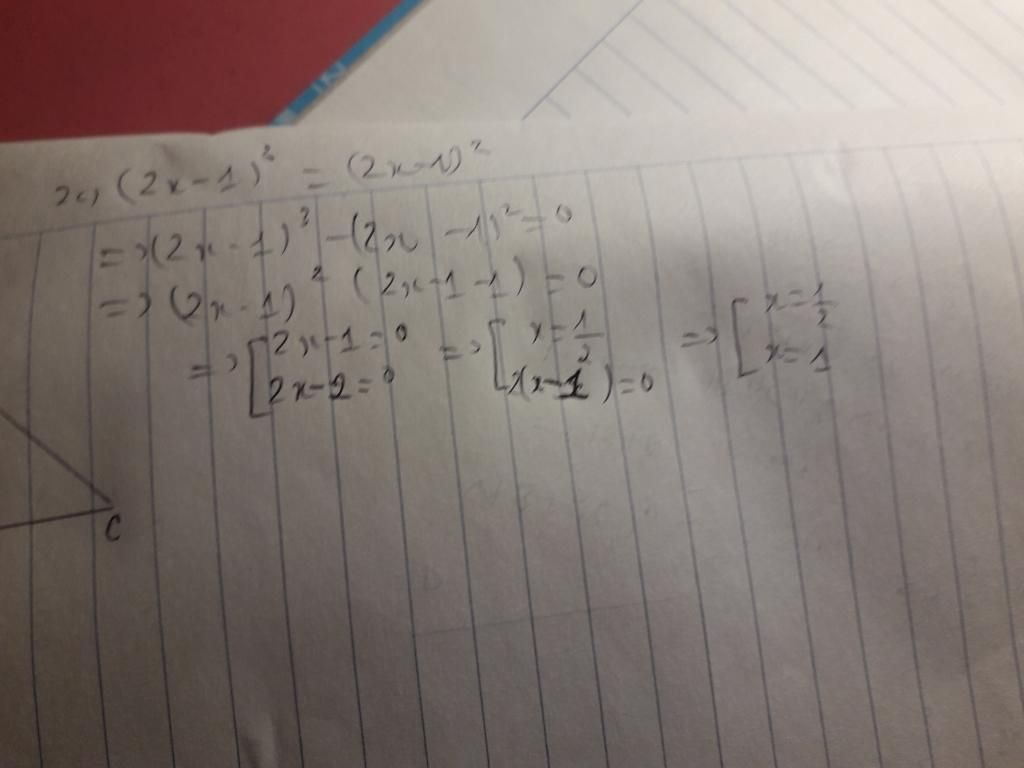 IN
2c, (2x-1)³ = (2x-1)²
=> (2x-1)³ - (2x-1)² = 0
=> (2x-1)² (2x-1-1) = 0
=> [2x-1=0 => [x=1/2 => [x=1/2
2x-2=0 2(x-1)=0 x=1
C